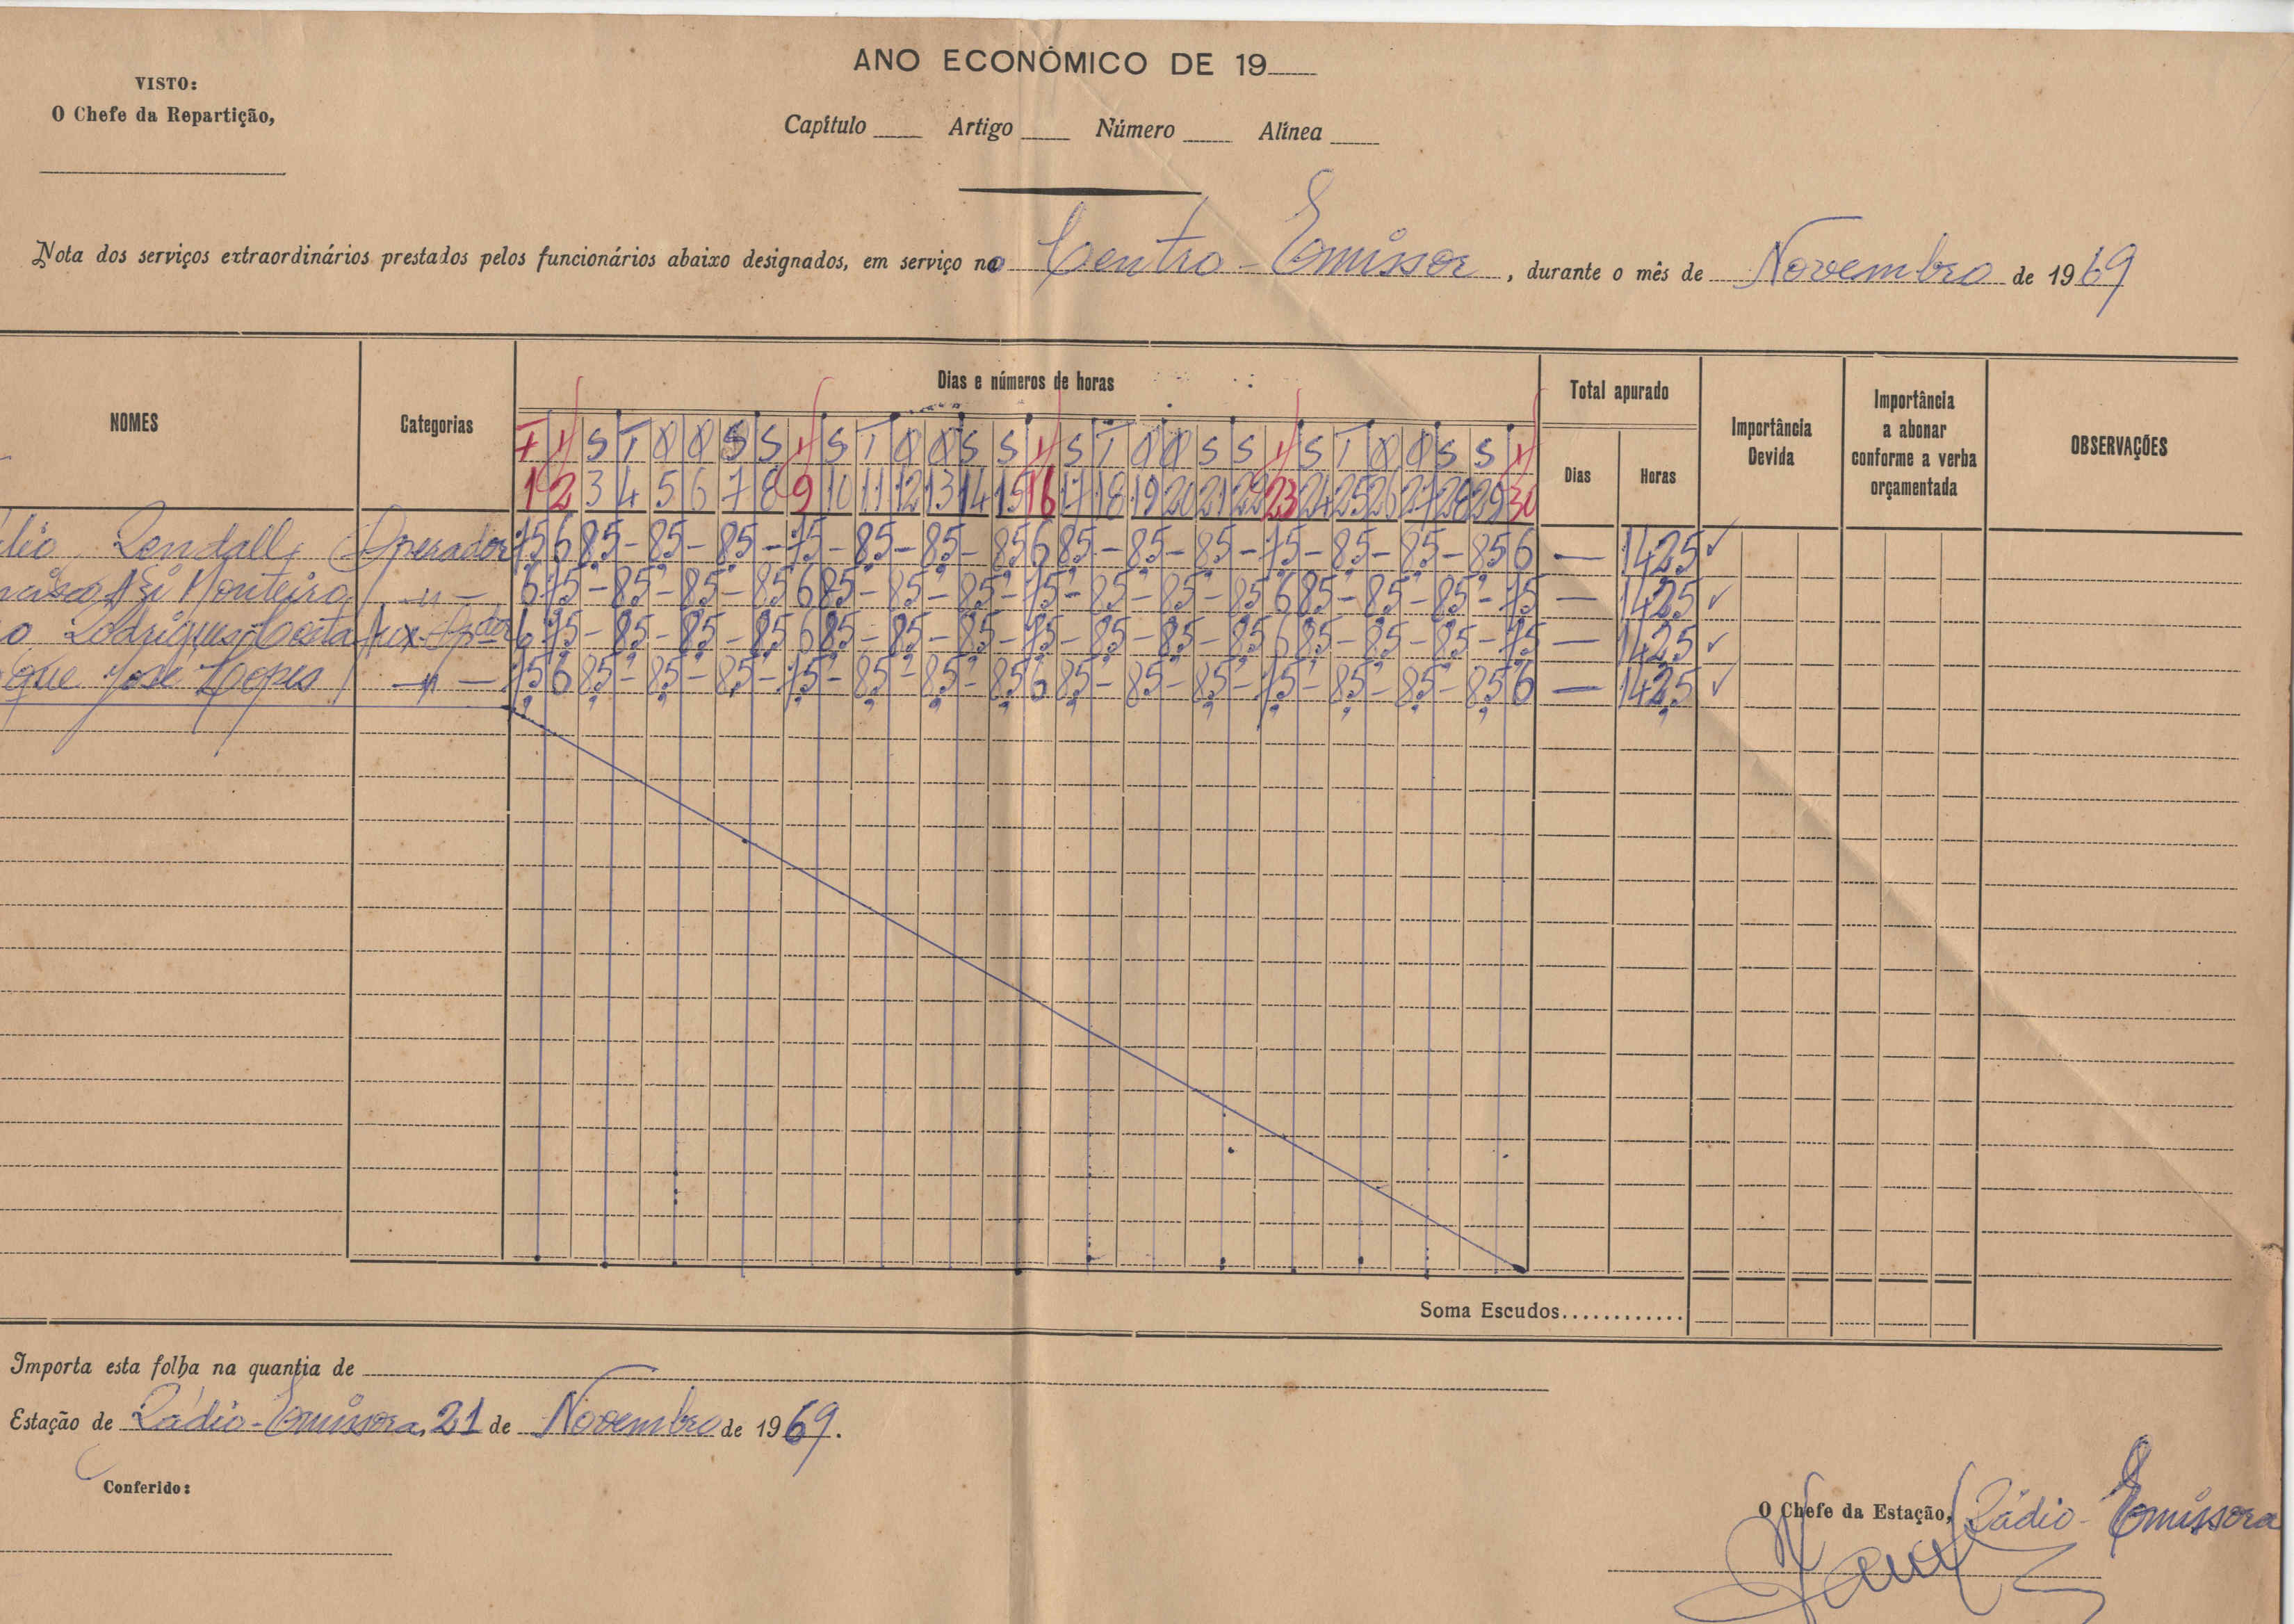 ANO ECONÓMICO DE 19
VISTO:
O Chefe da Repartição,
Capítulo Artigo Número Alínea
Nota dos serviços extraordinários prestados pelos funcionários abaixo designados, em serviço no Centro-Emissor, durante o mês de Novembro de 1969
NOMES Categorias Dias e números de horas Total apurado Importância Devida Importância a abonar conforme a verba orçamentada OBSERVAÇÕES
S T Q Q S S S T Q Q S S S T Q Q S S S T Q Q S S
Dias Horas
1 2 3 4 5 6 7 8 9 10 11 12 13 14 15 16 17 18 19 20 21 22 23 24 25 26 27 28 29 30
lio Rendall Operador 75 6 85 - 85 - 85 - 75 - 85 - 85 - 85 6 85 - 85 - 85 - 75 - 85 - 85 - 85 6 — 142,5 ✓
Monteiro — " — 6 75 - 85 - 85 - 85 6 85 - 85 - 85 - 75 - 85 - 85 - 85 6 85 - 85 - 85 - 75 — 142,5 ✓
o Rodrigues Costa Aux. Opdor 6 75 - 85 - 85 - 85 6 85 - 85 - 85 - 75 - 85 - 85 - 85 6 85 - 85 - 85 - 75 — 142,5 ✓
que José Lopes — " — 75 6 85 - 85 - 85 - 75 - 85 - 85 - 85 6 85 - 85 - 85 - 75 - 85 - 85 - 85 6 — 142,5 ✓
Soma Escudos............
Importa esta folha na quantia de
Estação de Rádio-Emissora, 21 de Novembro de 1969.
Conferido:
O Chefe da Estação, Rádio-Emissora